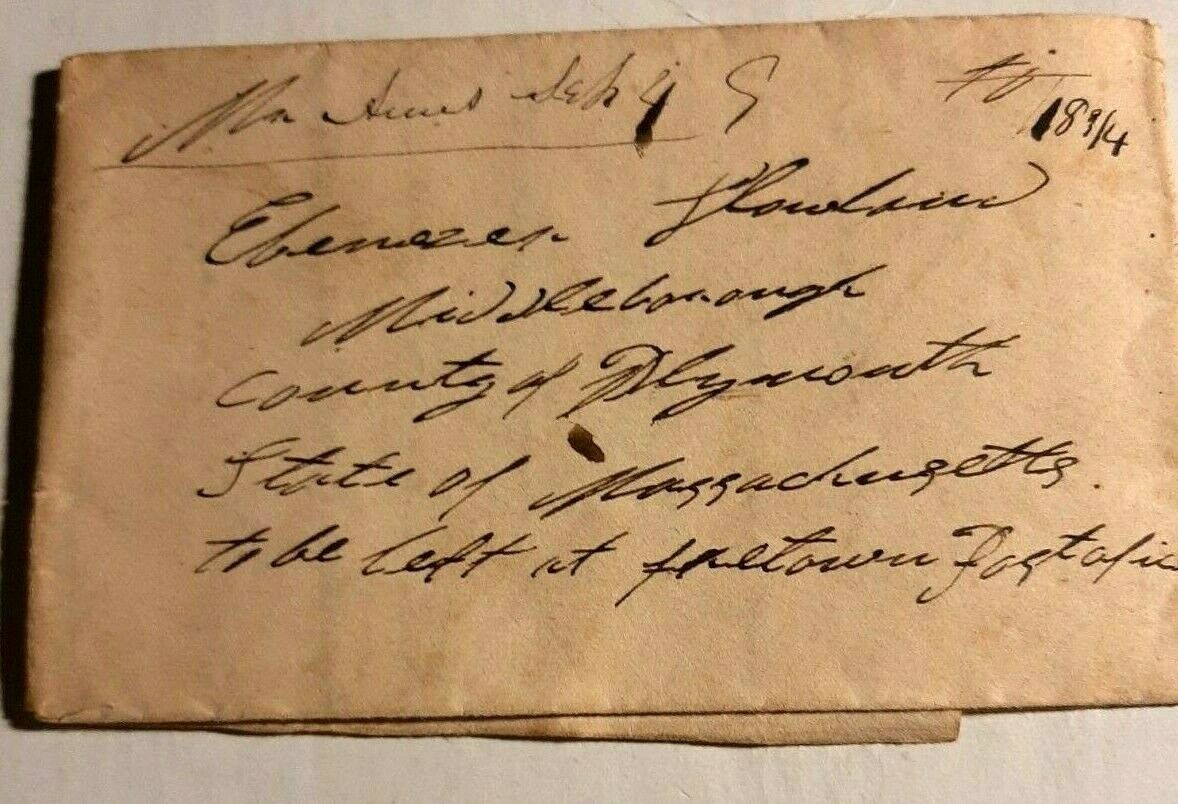 18 3/4
Ebenezer Howland
Middleborough
County of Plymouth
State of Massachusetts.
to be left at freetown Postofic